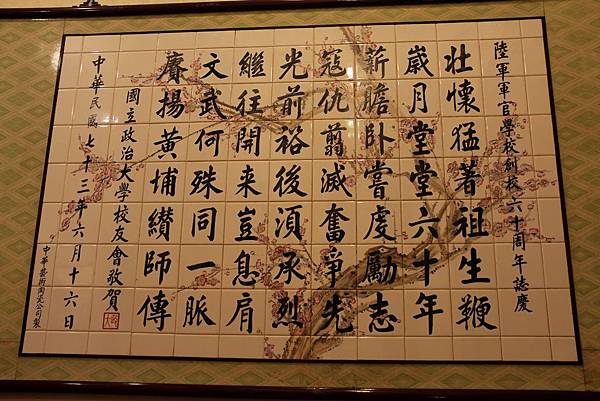 陸軍軍官學校創校六十周年誌慶
壯懷猛著祖生鞭
歲月堂堂六十年
薪膽卧嘗虔勵志
寇仇翦滅奮爭先
光前裕後須承烈
繼往開来豈息肩
文武何殊同一脈
賡揚黃埔纘師傳
國立政治大學校友會敬賀
中華民國七十三年六月十六日
中華藝術陶瓷公司製